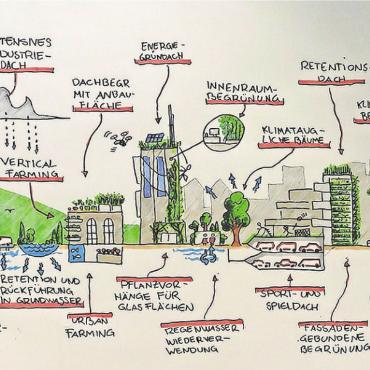 TENSIVES
DUSTRIE-
DACH
DACHBEGR
MIT ANBAU-
FLÄCHE
ENERGIE-
GRÜNDACH
INNENRAUM-
BEGRÜNUNG
RETENTIONS-
DACH
KLIMATAUG-
LICHE BÄUME
BE
VERTICAL
FARMING
RETENTION UND
RÜCKFÜHRUNG
IN GRUNDWASSER
URBAN
FARMING
PFLANZVOR-
HÄNGE FÜR
GLASFLÄCHEN
REGENWASSER
WIEDERVER-
WENDUNG
SPORT- UND
SPIELDACH
FASSADEN-
GEBUNDENE
BEGRÜNUNG